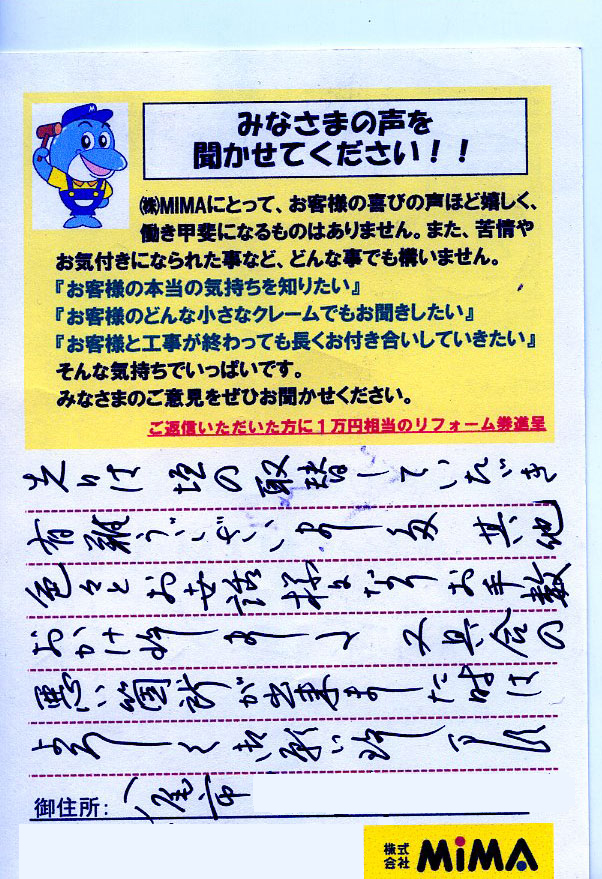 みなさまの声を
聞かせてください！！
㈱MIMAにとって、お客様の喜びの声ほど嬉しく、
働き甲斐になるものはありません。また、苦情や
お気付きになられた事など、どんな事でも構いません。
『お客様の本当の気持ちを知りたい』
『お客様のどんな小さなクレームでもお聞きしたい』
『お客様と工事が終わっても長くお付き合いしていきたい』
そんな気持ちでいっぱいです。
みなさまのご意見をぜひお聞かせください。
ご返信いただいた方に１万円相当のリフォーム券進呈
の取替していただき
有難うございました 其他
色々とお世話様になり お手数
おかけ致しまして 又具合の
悪い箇所が出来ました時は
よろしくお願い致します
御住所: 八尾市
株式会社 MiMA